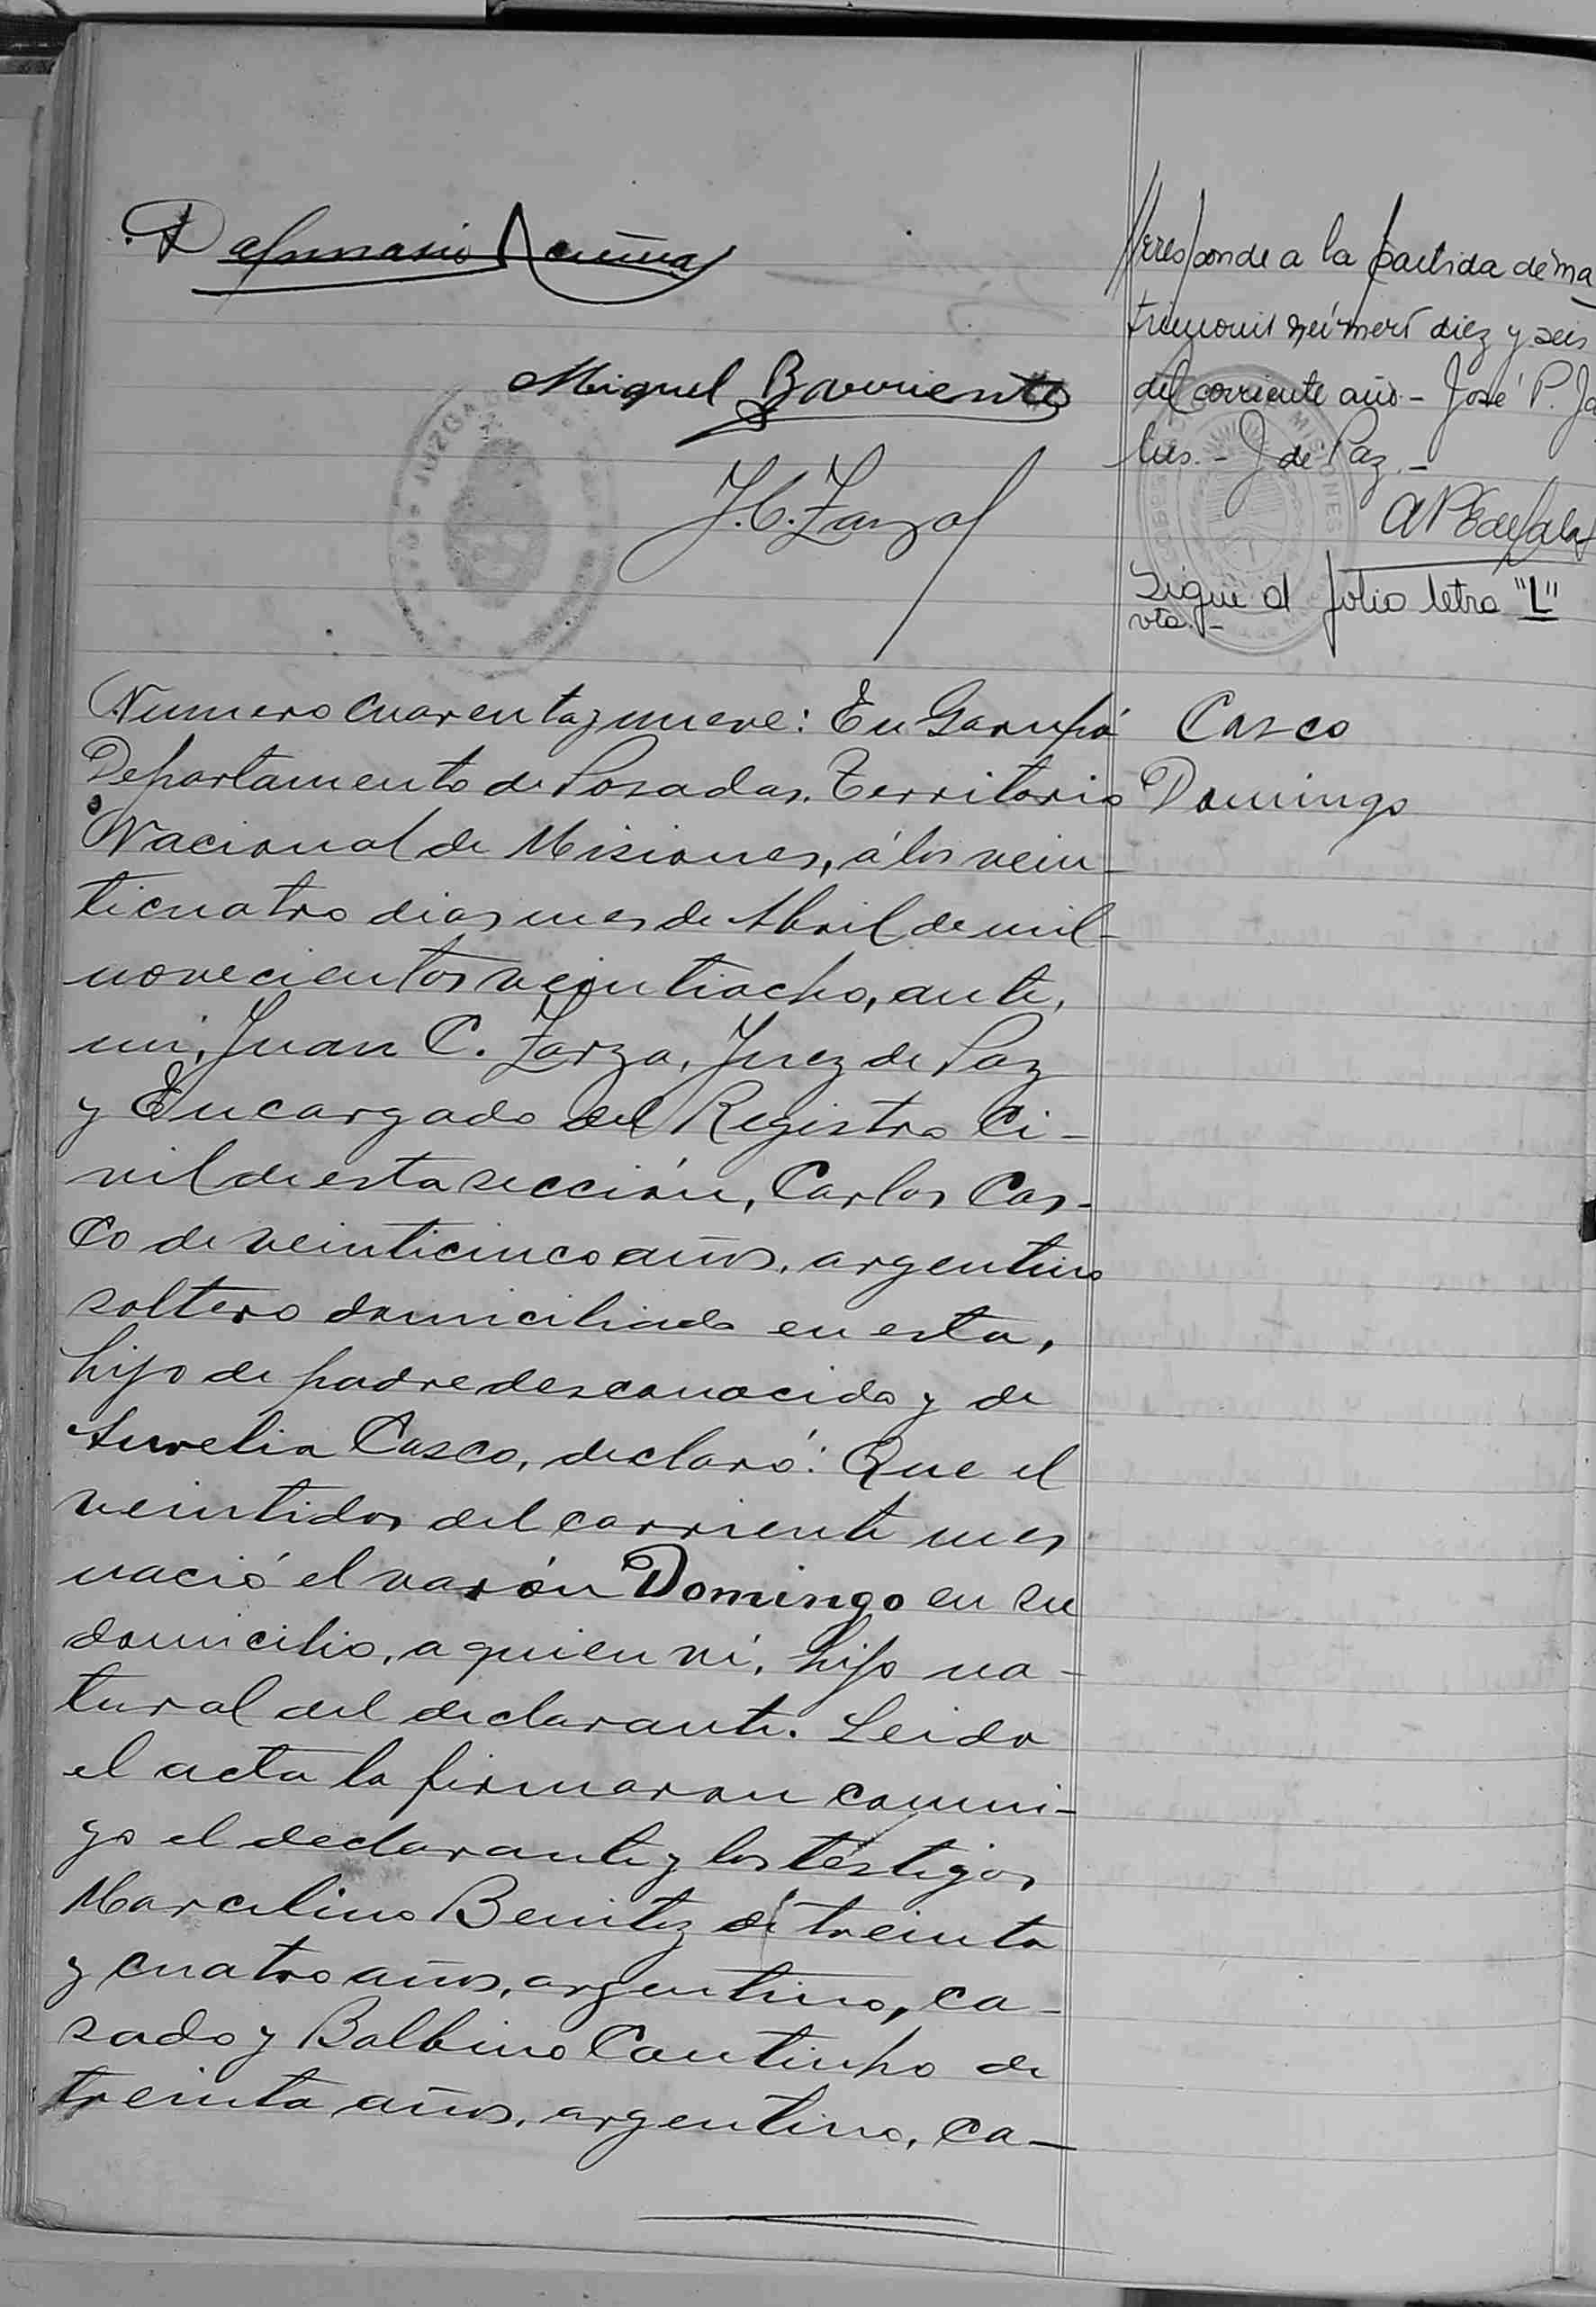 Dalmasio Acuña
Miguel Barriento
J. C. Zarza
JUZGADO
rresponde a la partida de ma
trimonio número diez y seis
del corriente año - José P.
J. de Paz. -
MISIONES
Sigue al folio letra "L"
vta. -
Casco
Domingo
Numero cuarenta y nueve: En Garupá
Departamento de Posadas. Territorio
Nacional de Misiones, á los vein-
ticuatro dias mes de Abril de mil-
novecientos veintiocho, ante,
mi, Juan C. Zarza, Juez de Paz
y Encargado del Registro Ci-
vil de esta sección, Carlos Cas-
co de veinticinco años, argentino
soltero domiciliado en esta,
hijo de padre desconocido y de
Aurelia Casco, declaró: Que el
veintidos del corriente mes
nació el varón Domingo en su
domicilio, a quien vi, hijo na-
tural del declarante. Leida
el acta la firmaron conmi-
go el declarante y los testigos
Marcelino Benitez de treinta
y cuatro años, argentino, ca-
sado y Balbino Coutinho de
treinta años, argentino, ca-